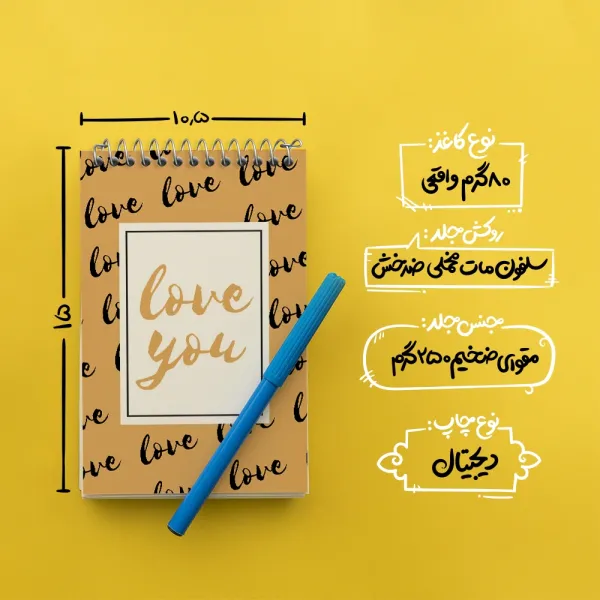 ۱۰٫۵
۱۵
love love love
love love love
love
love
love
love you
love
love love
love love
love
نوع کاغذ:
۸۰گرم واقعی
روکش جلد:
سلفون مات مخملی ضدخش
جنس جلد:
مقوای ضخیم ۲۵۰گرم
نوع چاپ:
دیجیتال